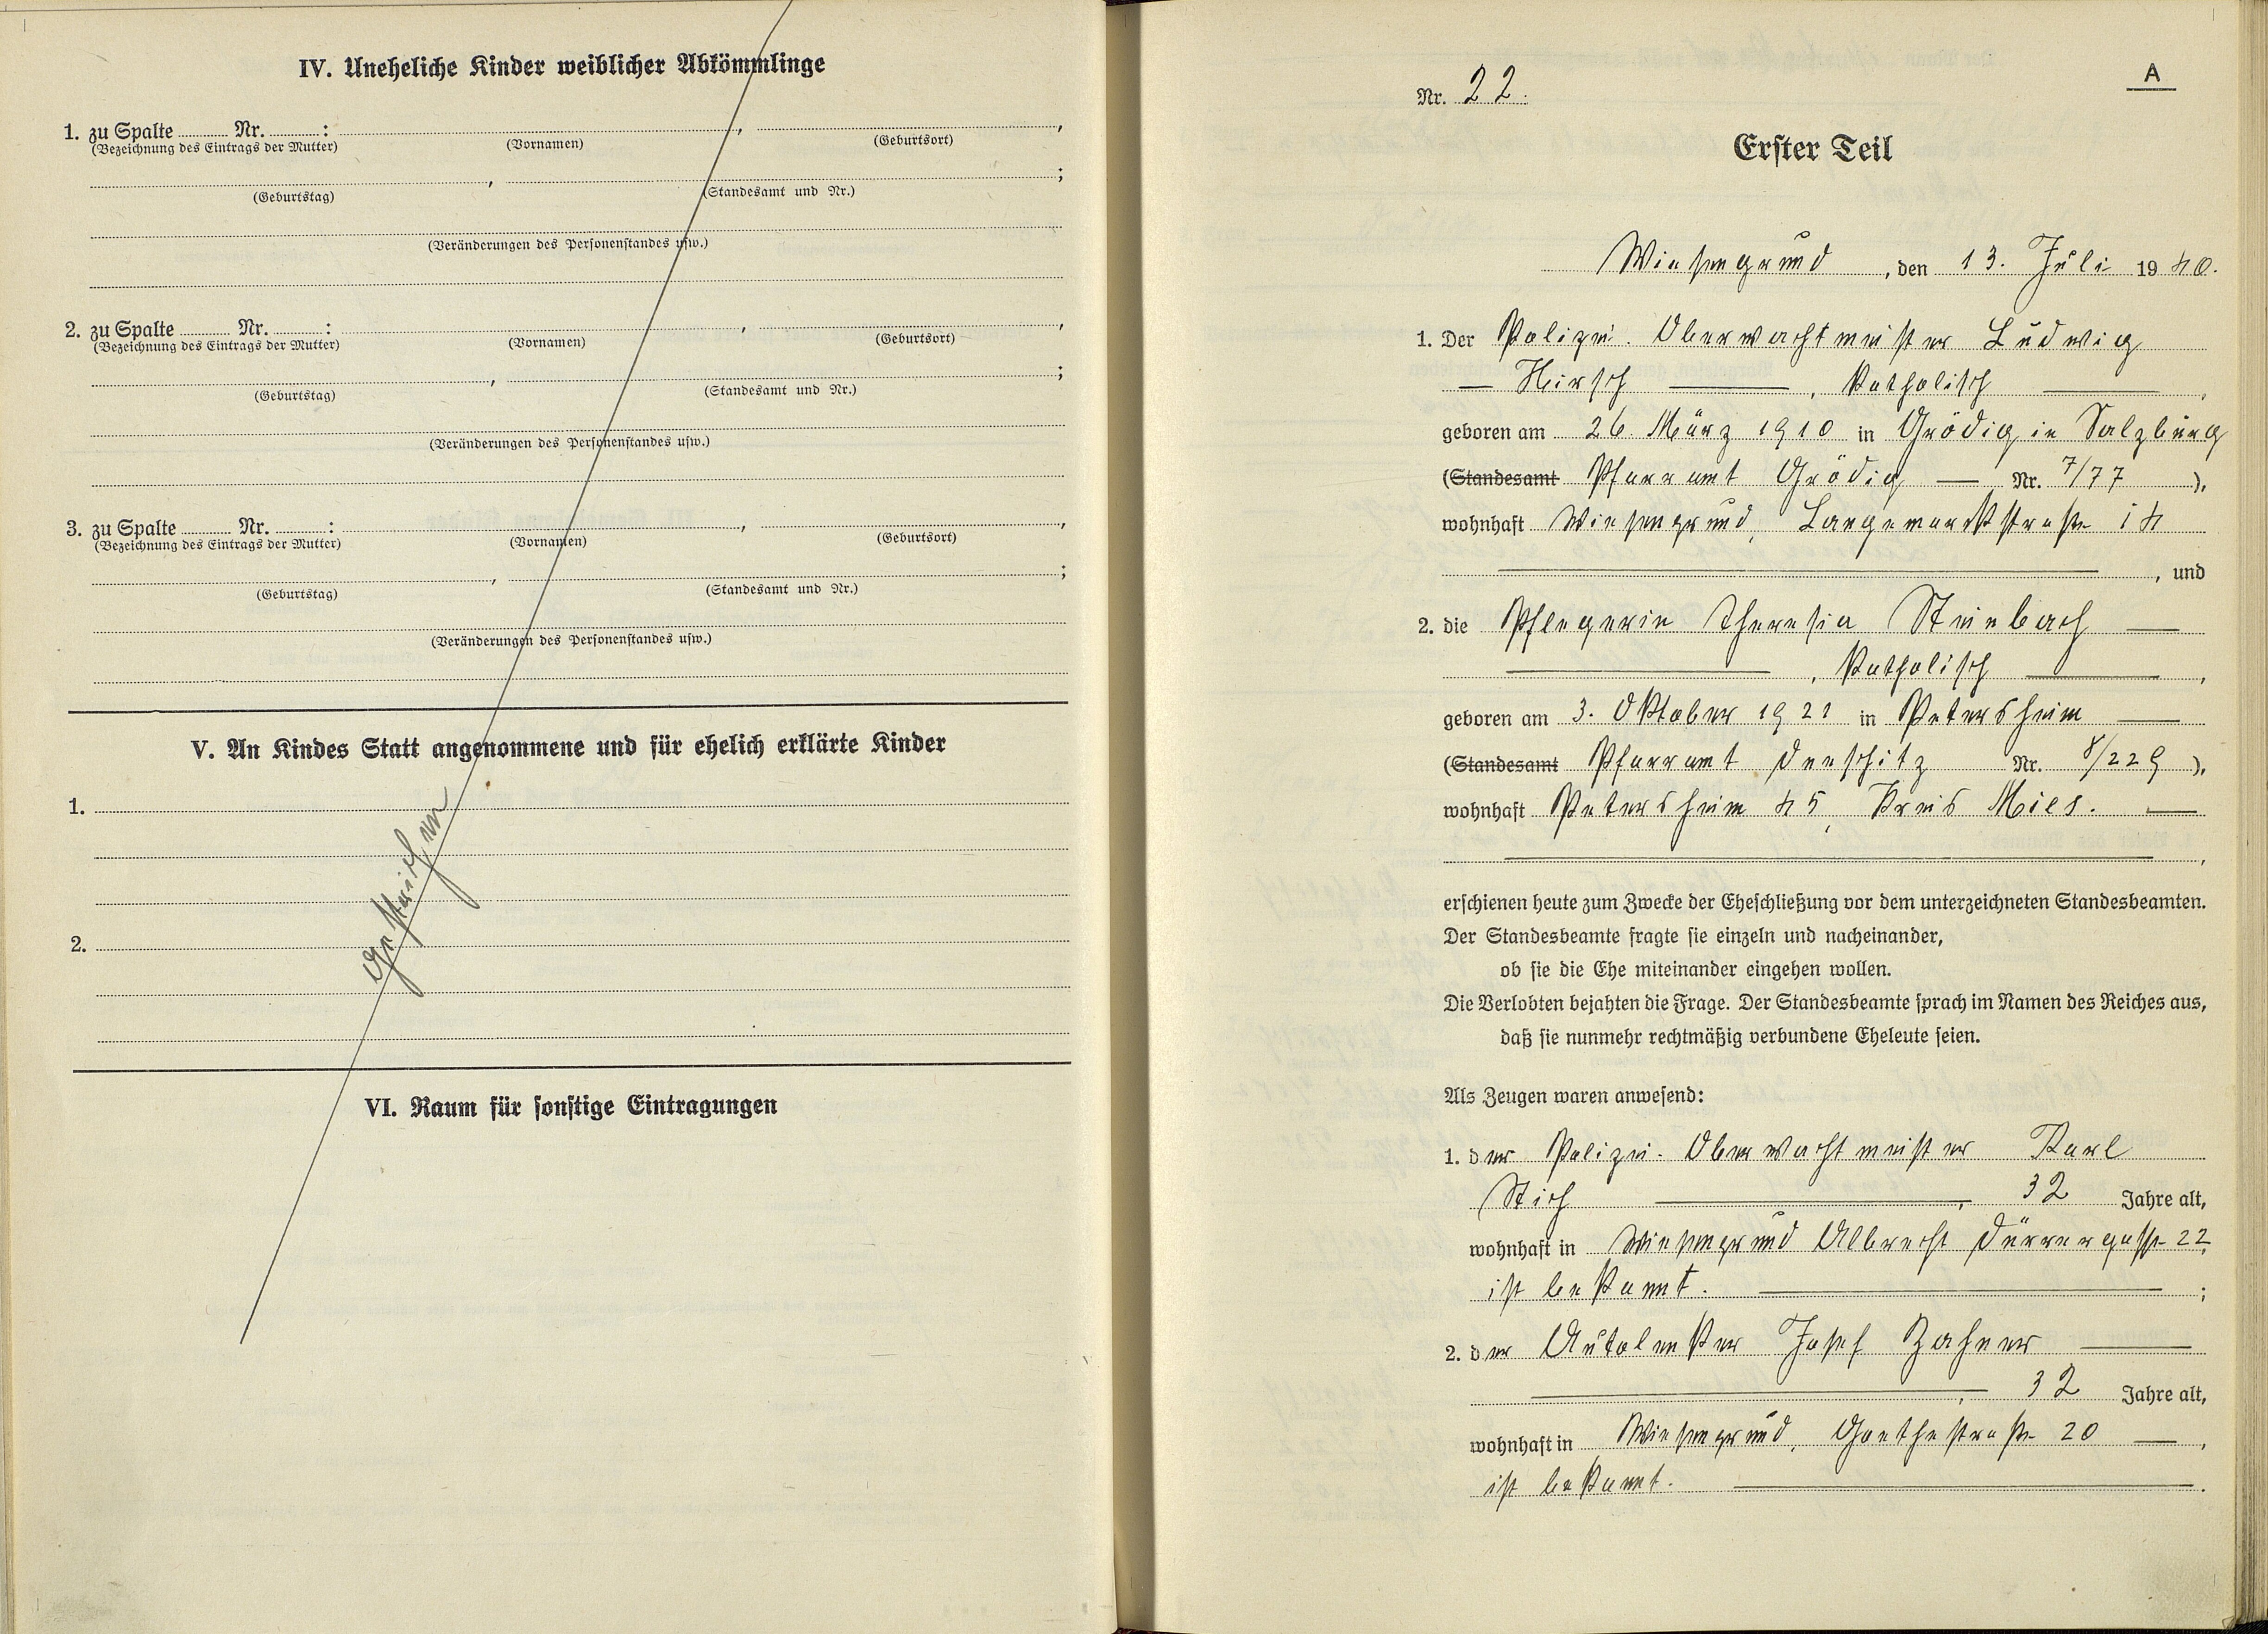 IV. Uneheliche Kinder weiblicher Abkömmlinge
1. zu Spalte Nr. : , ,
(Bezeichnung des Eintrags der Mutter) (Vornamen) (Geburtsort)
, ;
(Geburtstag) (Standesamt und Nr.)
(Veränderungen des Personenstandes usw.)
2. zu Spalte Nr. : , ,
(Bezeichnung des Eintrags der Mutter) (Vornamen) (Geburtsort)
, ;
(Geburtstag) (Standesamt und Nr.)
(Veränderungen des Personenstandes usw.)
3. zu Spalte Nr. : , ,
(Bezeichnung des Eintrags der Mutter) (Vornamen) (Geburtsort)
, ;
(Geburtstag) (Standesamt und Nr.)
(Veränderungen des Personenstandes usw.)
V. An Kindes Statt angenommene und für ehelich erklärte Kinder
1.
Gestrichen
2.
VI. Raum für sonstige Eintragungen
A
Nr. 22.
Erster Teil
Wiesengrund, den 13. Juli 1940.
1. Der Polizei-Oberwachtmeister Ludwig
— Hirsch —, Katholisch —,
geboren am 26. März 1910 in Grödig in Salzburg
(Standesamt Pfarramt Grödig — Nr. 7/77),
wohnhaft Wiesengrund, Langemarkstraße 14
, und
2. die Pflegerin Theresia Steinbach —
—, Katholisch —,
geboren am 3. Oktober 1921 in Petersheim —
(Standesamt Pfarramt Nr. 8/229),
wohnhaft Petersheim 45, Kreis Mies. —
,
erschienen heute zum Zwecke der Eheschließung vor dem unterzeichneten Standesbeamten.
Der Standesbeamte fragte sie einzeln und nacheinander,
ob sie die Ehe miteinander eingehen wollen.
Die Verlobten bejahten die Frage. Der Standesbeamte sprach im Namen des Reiches aus,
daß sie nunmehr rechtmäßig verbundene Eheleute seien.
Als Zeugen waren anwesend:
1. der Polizei-Oberwachtmeister Karl
Stich —, 32 Jahre alt,
wohnhaft in Wiesengrund Albrecht Dürrergasse 22,
ist bekannt. — ;
2. der Autolenker Josef Zahner —
—, 32 Jahre alt,
wohnhaft in Wiesengrund, Goethestraße 20 —,
ist bekannt. — .